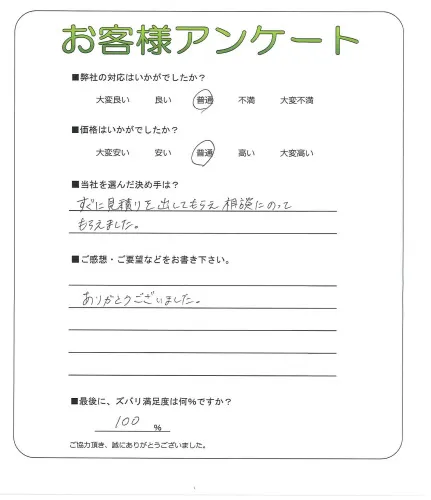 お客様アンケート
■弊社の対応はいかがでしたか？
大変良い 良い 普通 不満 大変不満
■価格はいかがでしたか？
大変安い 安い 普通 高い 大変高い
■当社を選んだ決め手は？
すぐに見積りを出してもらえ相談にのって
もらえました。
■ご感想・ご要望などをお書き下さい。
ありがとうございました。
■最後に、ズバリ満足度は何%ですか？
100 %
ご協力頂き、誠にありがとうございました。